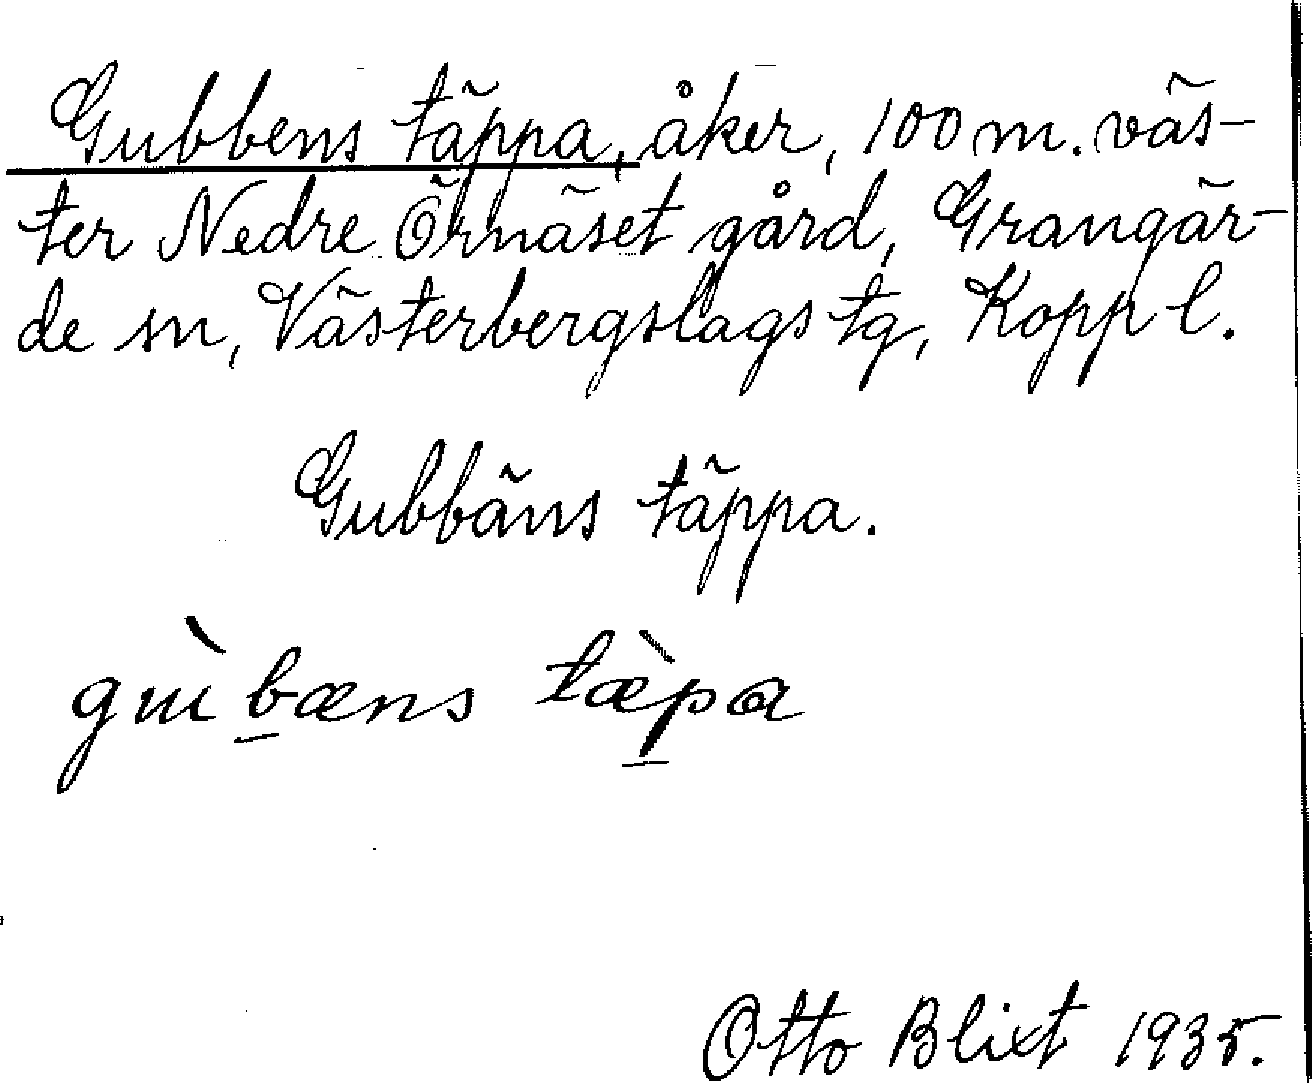 Gubbens täppa, åker, 100 m. väs-
ter Nedre Örnäset gård, Grangär-
de sn, Västerbergslags tg, Kopp l.
Gubbäns täppa.
gɯ̀b̲æns tæ̀p̲a
Otto Blixt 1935.